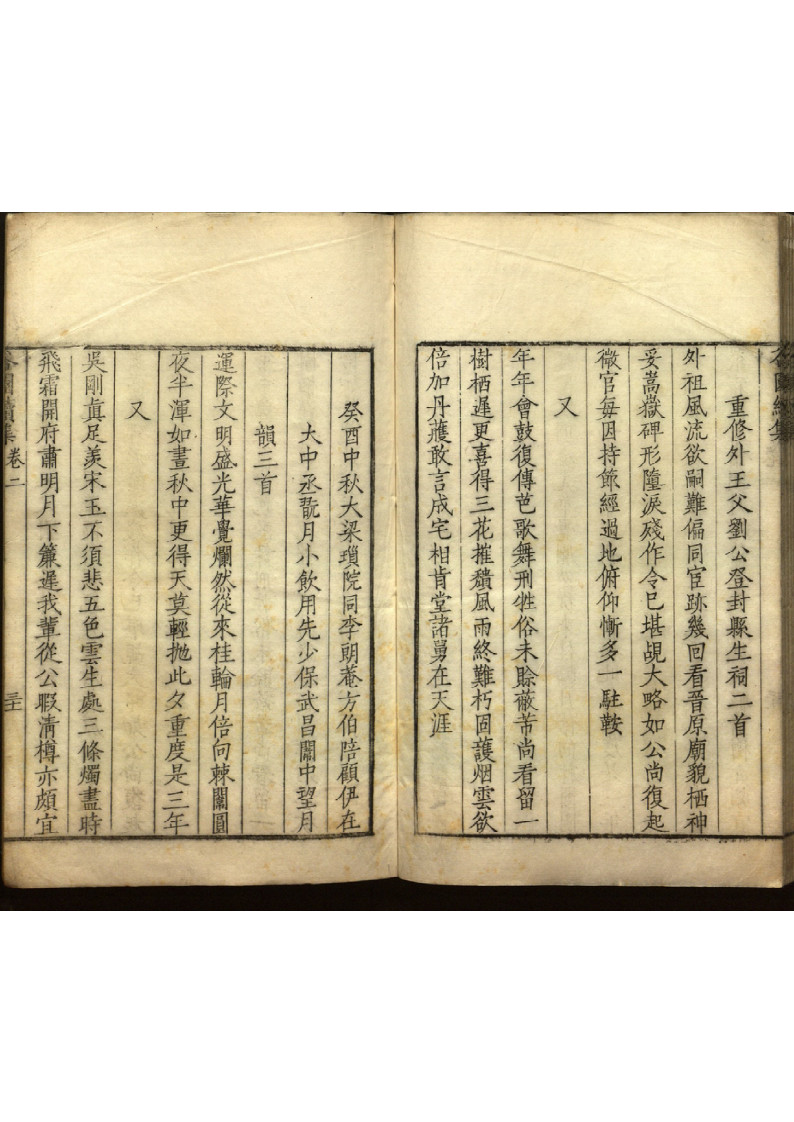 重修外王父劉公登封縣生祠二首
外祖風流欲嗣難偏同宦跡幾回看晉原廟貌栖神
妥嵩嶽碑形墮淚殘作令已堪覘大略如公尚復起
微官每因持節經過地俯仰慚多一駐鞍
又
年年會鼓復傳芭歌舞刑牲俗未賒蔽芾尚看留一
樹栖遲更喜得三花摧頹風雨終難朽固護烟雲欲
倍加丹雘敢言成宅相肯堂諸舅在天涯
癸酉中秋大梁瑣院同李朗菴方伯陪顧伊在
大中丞翫月小飲用先少保武昌闈中望月
韻三首
運際文明盛光華覺爛然從來桂輪月倍向棘闈圓
夜半渾如晝秋中更得天莫輕拋此夕重度是三年
又
吳剛眞足羨宋玉不須悲五色雲生處三條燭盡時
飛霜開府肅明月下簾遲我輩從公暇清樽亦頗宜
卷二